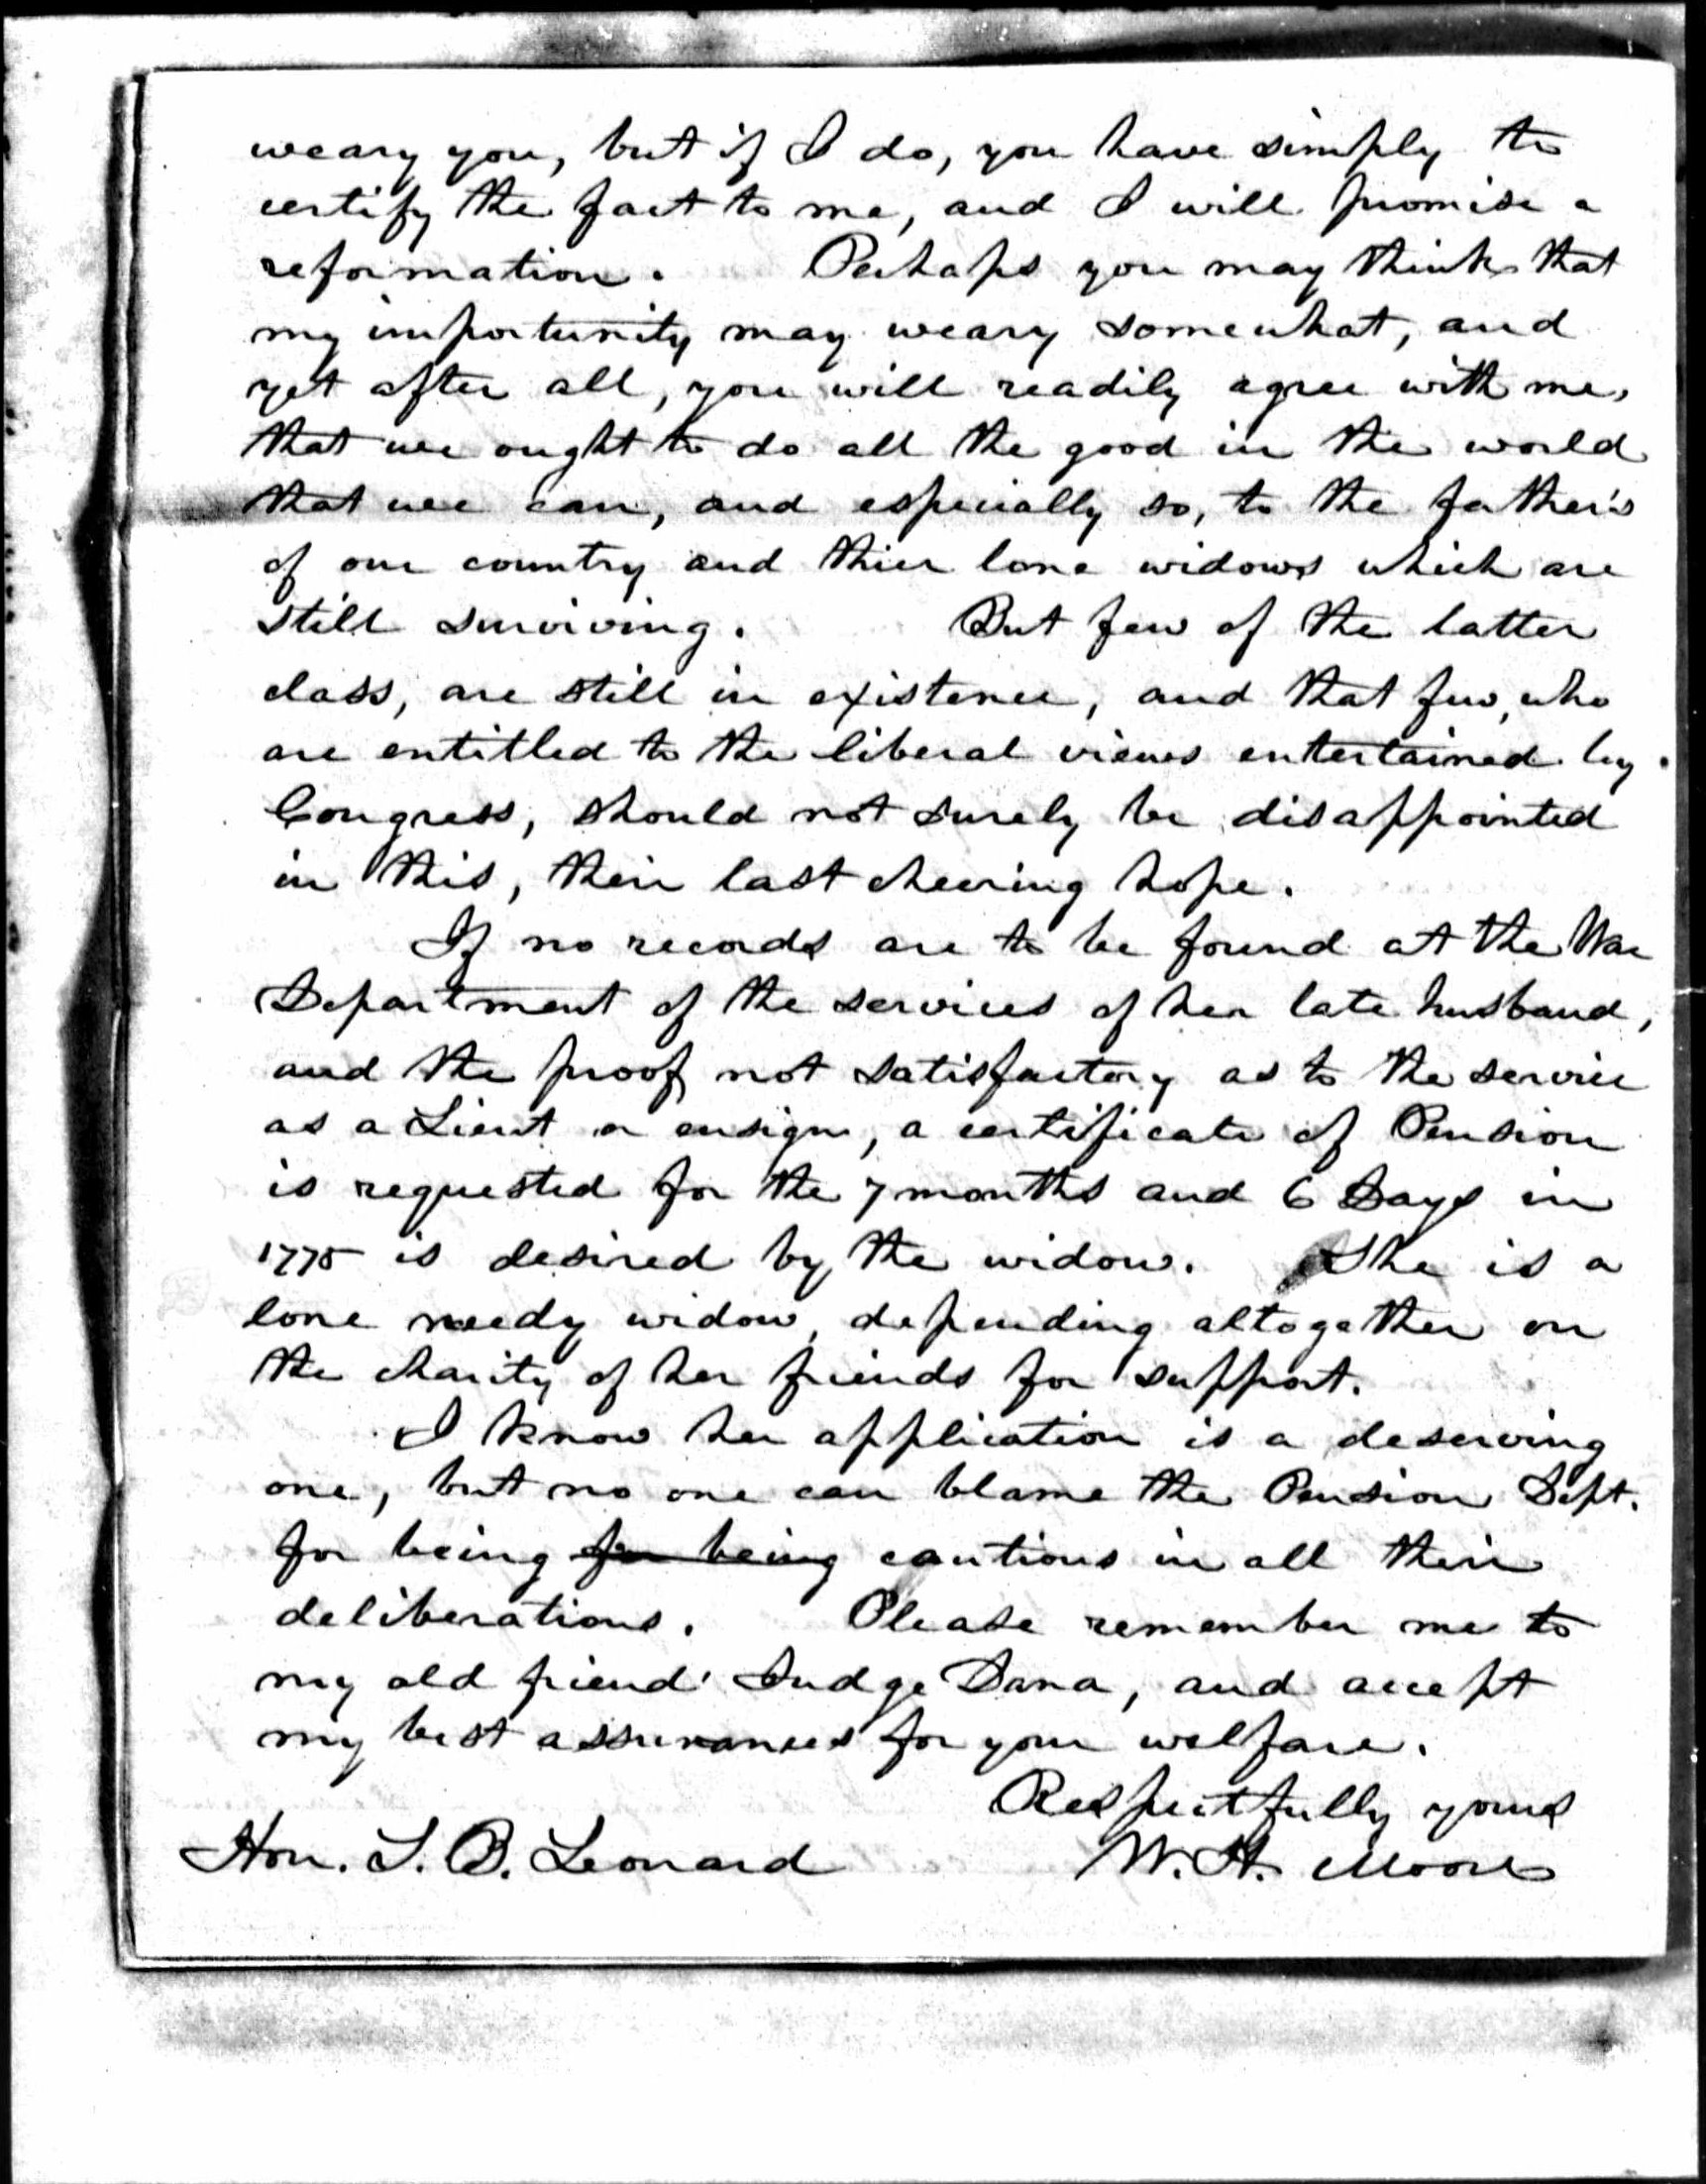 weary you, but if I do, you have simply to
certify the fact to me, and I will promise a
reformation. Perhaps you may think that
my importunity may weary somewhat, and
yet after all, you will readily agree with me,
that we ought to do all the good in the world
that we can, and especially so, to the father's
of our country and thier lone widows which are
still surviving. But few of the latter
class, are still in existence, and that few, who
are entitled to the liberal views entertained by
Congress, should not surely be disappointed
in this, their last cheering hope.
If no records are to be found at the War
Department of the services of her late husband,
and the proof not satisfactory as to the service
as a Lieut or ensign, a certificate of Pension
is requested for the 7 months and 6 Days in
1775 is desired by the widow. She is a
lone needy widow, depending altogether on
the charity of her friends for support.
I know her application is a deserving
one, but no one can blame the Pension Dept.
for being for being cautious in all their
deliberations. Please remember me to
my old friend Judge Dana, and accept
my best assurances for your welfare.
Respectfully yours
Hon. S. B. Leonard W. H. Moore